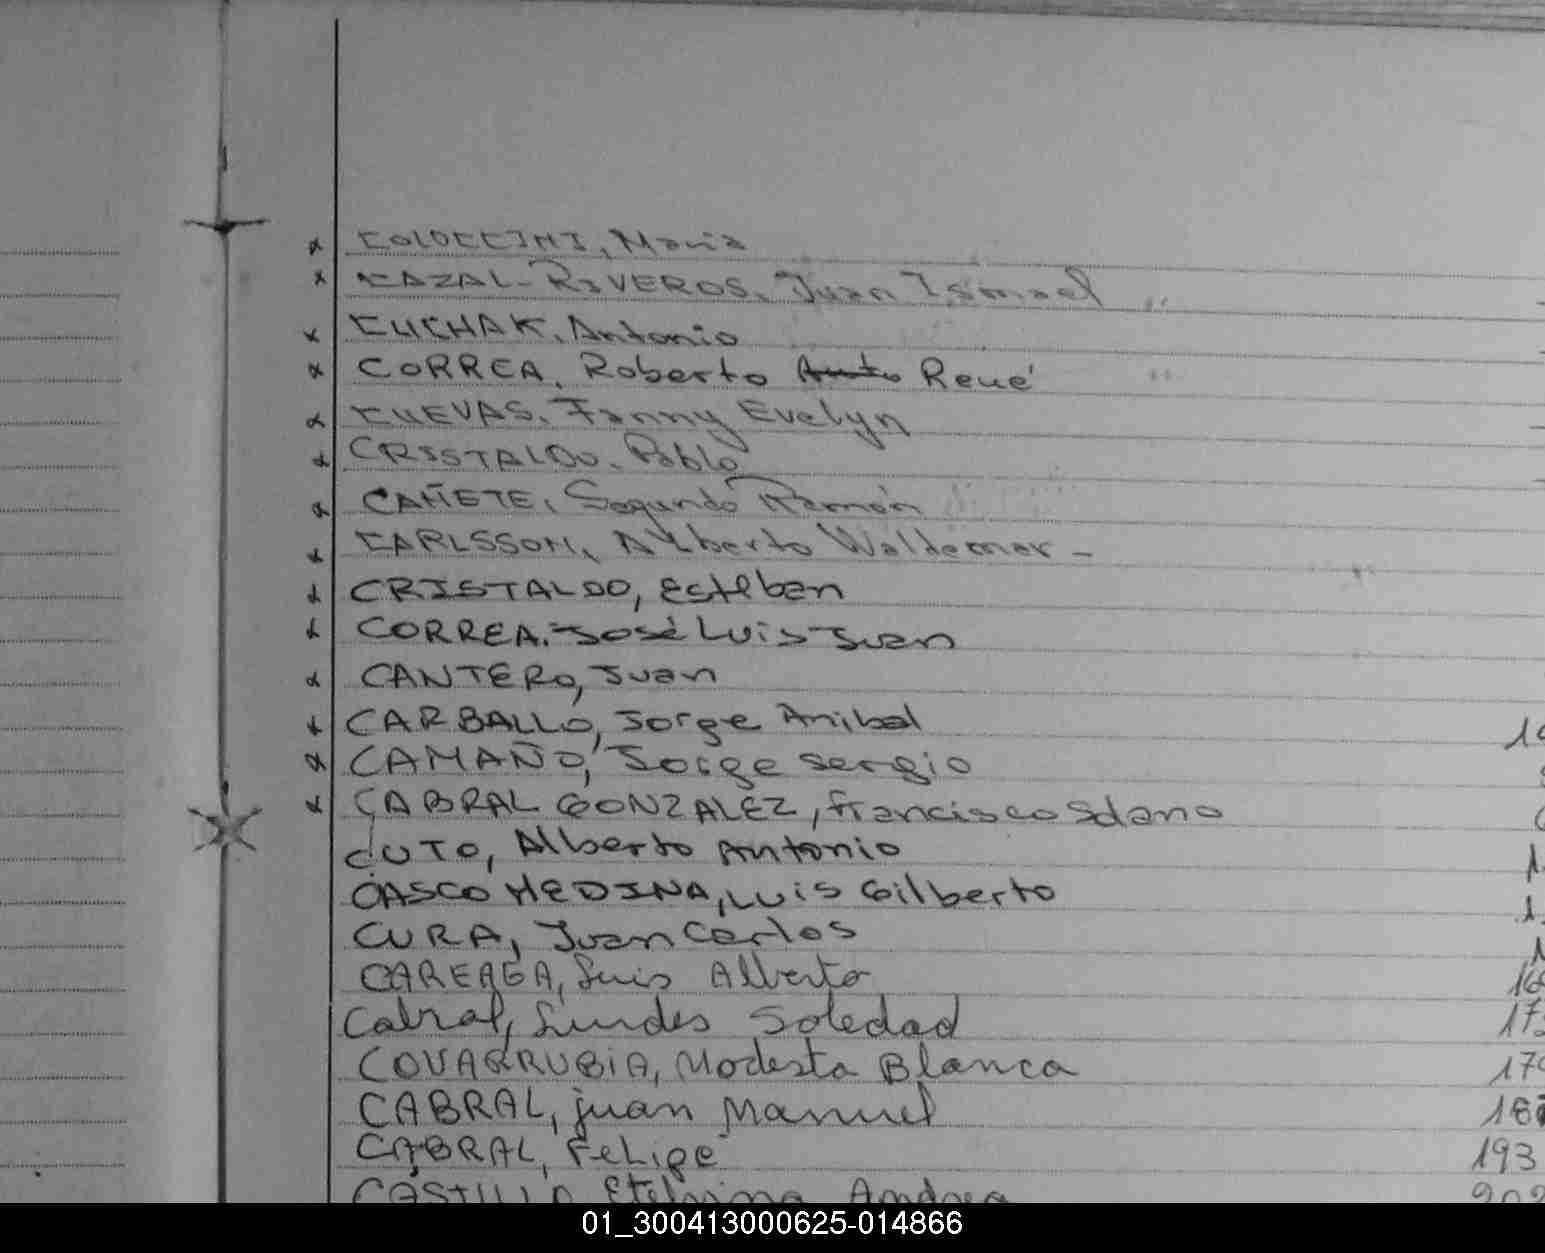 COLOCCINI, Maria
CAZAL-RIVEROS, Juan Ismael
CUCHAK, Antonio
CORREA, Roberto René
CUEVAS, Fanny Evelyn
CRISTALDO, Pablo
CAÑETE, Segundo Ramón
CARLSSON, Alberto Waldemar -
CRISTALDO, Esteban
CORREA. José Luis Juan
CANTERO, Juan
CARBALLO, Jorge Anibal
CAMAÑO, Jorge sergio
CABRAL GONZALEZ, francisco Solano
CUTO, Alberto Antonio
OASCO MEDINA, Luis Gilberto
CURA, Juan Carlos
CAREAGA, Luis Alberto
Cabral, Lurdes Soledad
COVARRUBIA, Modesta Blanca
CABRAL, juan Manuel
CABRAL, FeLipe 193
CASTILLO Etelvina Andrea
01_300413000625-014866